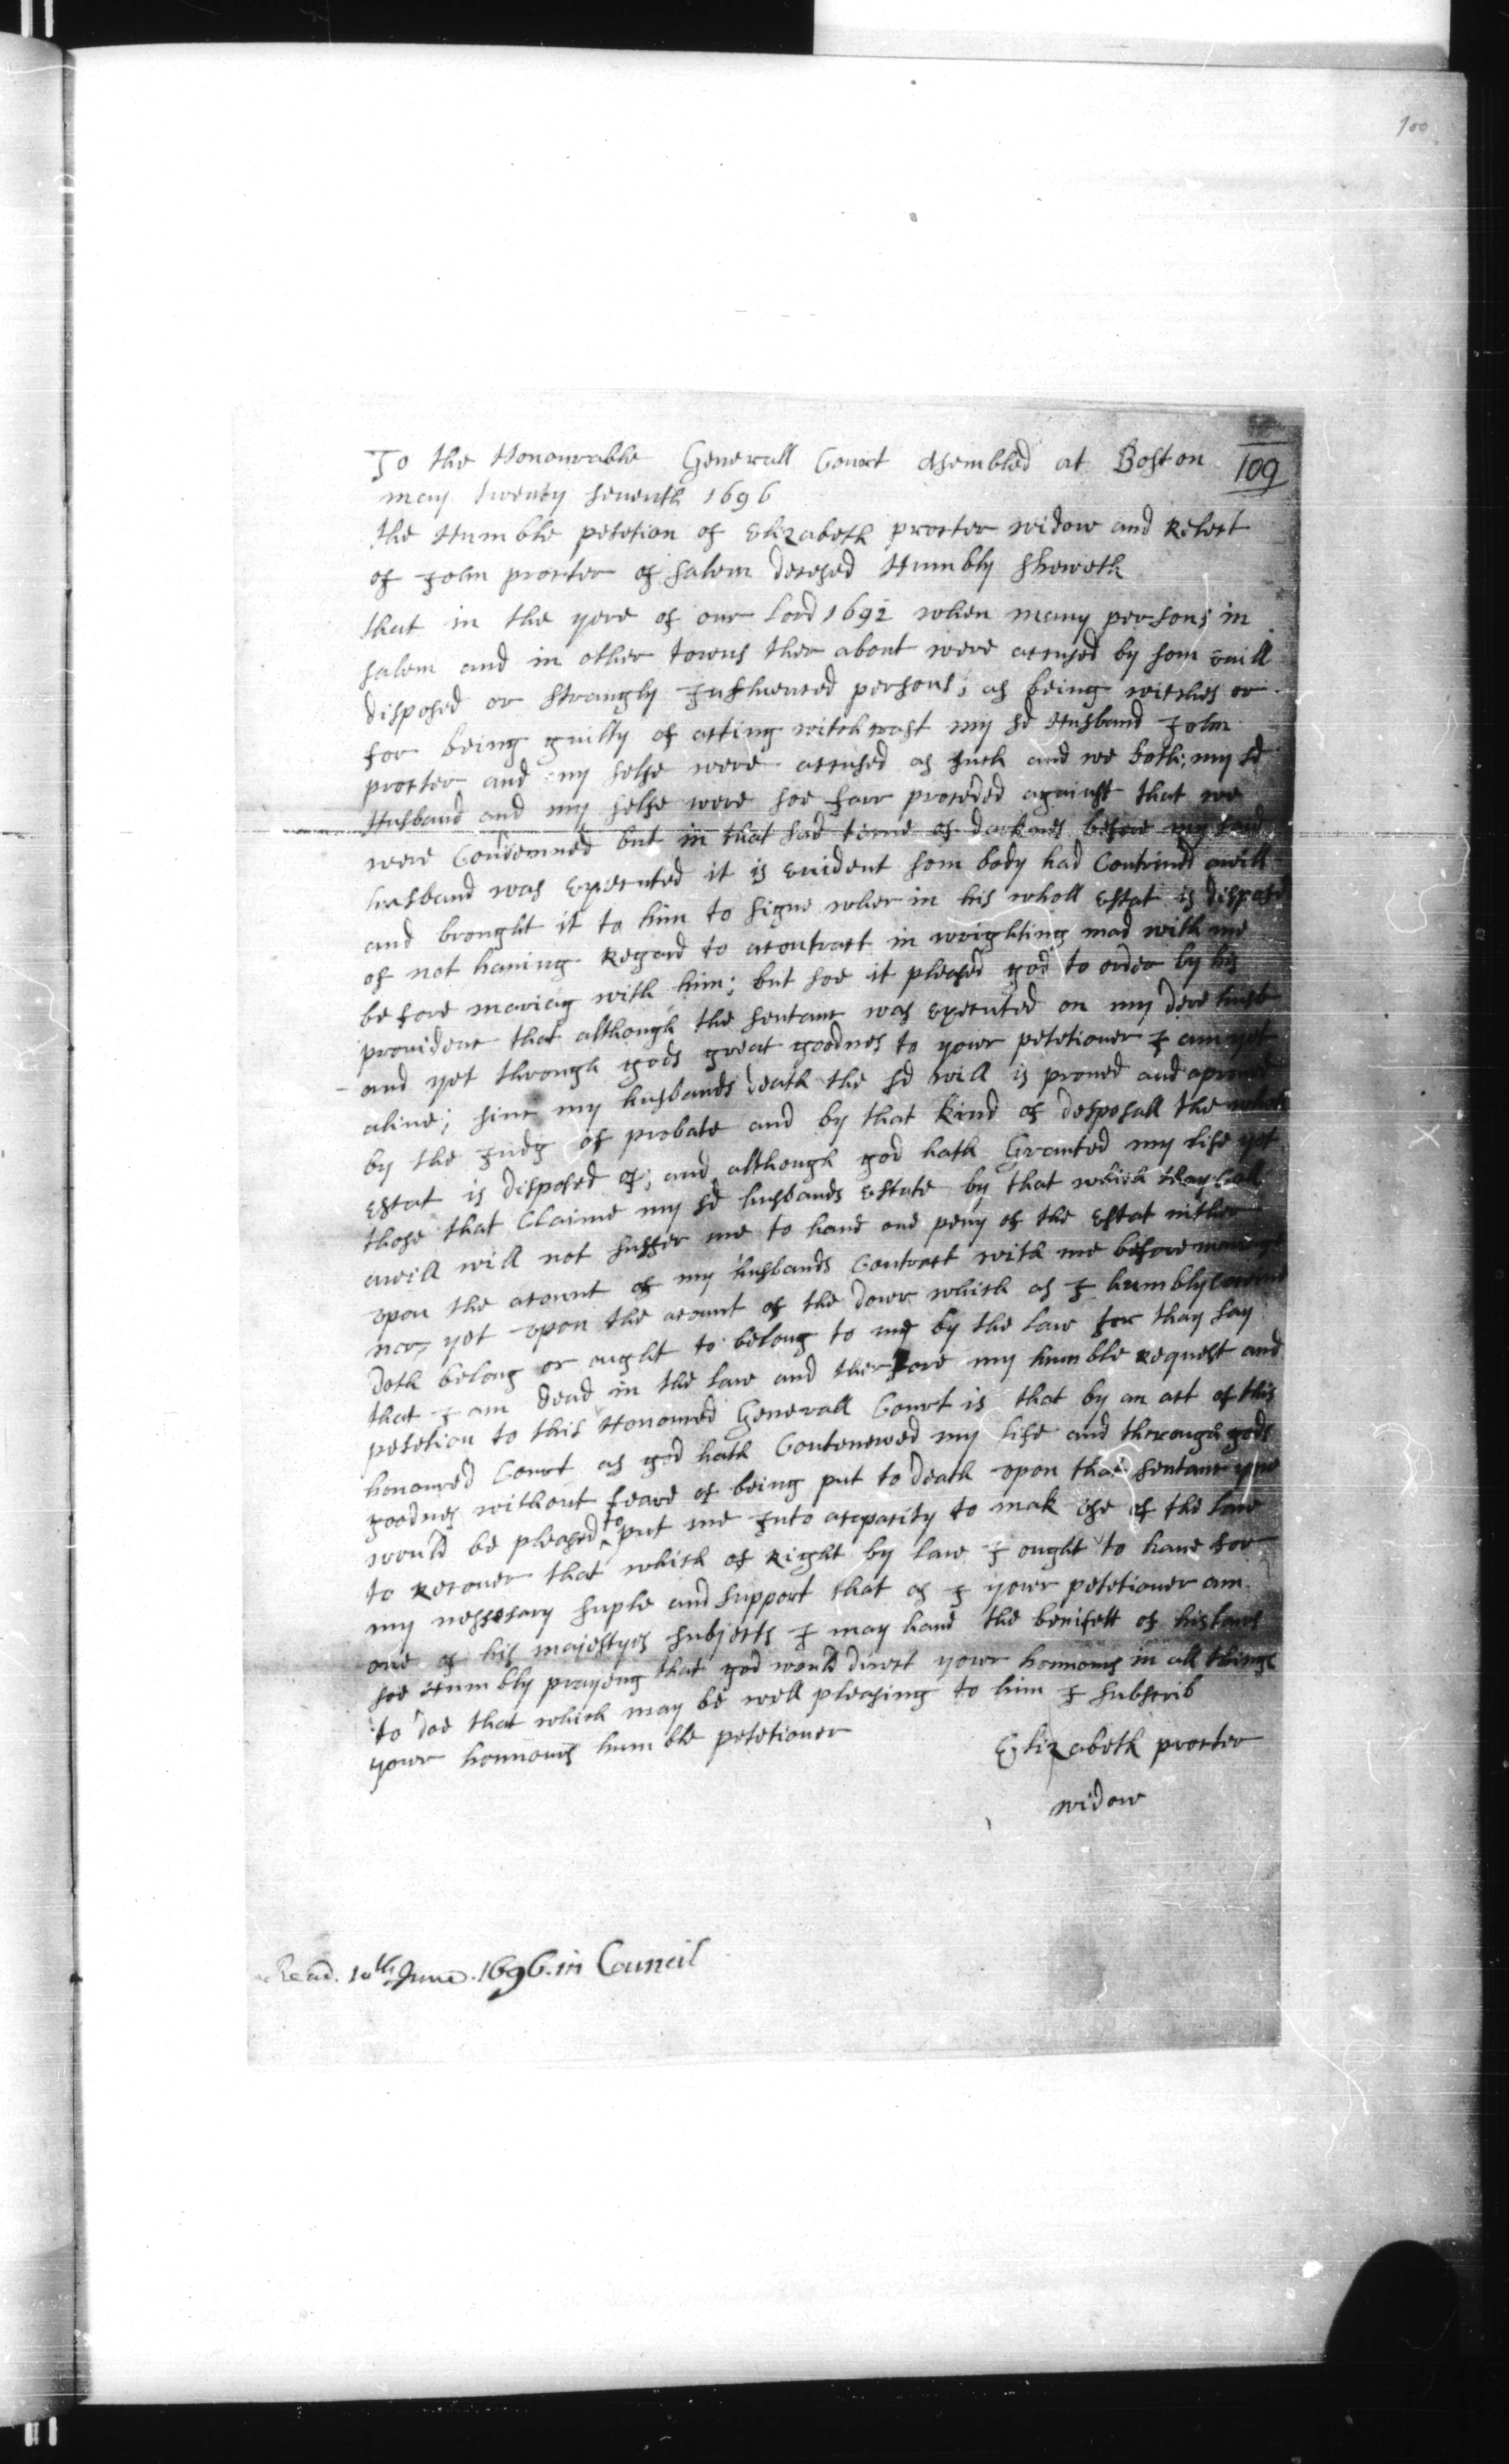 100
To the Honourable Generall Court asembled at Boston 109
may twenty seuenth 1696
the Humble petetion of Elizabeth procter widow and Relect
of John procter of salem decesed Humbly sheweth
that in the yere of our Lord 1692 when many persons in
salem and in other towns ther about were accused by som euill
disposed or strangly Jnfluenced persons, as being witches or
for being guilty of acting witchcraft my sd Husband John
procter and my selfe were accused as such and we both; my sd
Husband and my selfe were soe farr proceded against that we
were Condemned but in that sad time of darknes before my said
husband was executed it is euident som body had Contriued awill
and brought it to him to signe wher in his wholl estat is disposd
of not hauing Regard to acontract in wrighting mad with me
before mariag with him; but soe it pleased god to order by his
prouidenc that although the sentanc was executed on my dere husb
and yet through gods great goodnes to your petetioner J am yet
aliue; sinc my husbands death the sd will is proued and aproued
by the Judg of probate and by that kind of desposall the wholl
estat is disposed of; and although god hath Granted my life yet
those that Claime my sd husbands estate by that which thay Call
awill will not suffer me to haue one peny of the Estat nither
upon the acount of my husbands Contract with me before mariage
nor yet upon the acount of the dowr which as J humbly
doth belong or ought to belong to me by the law for thay say
that J am dead in the law and therfore my humble Request and
petetion to this Honoured Generall Court is that by an act of this
honoured Court as god hath Contenewed my life and through gods
goodnes without feare of being put to death upon that sentanc
would be pleased ^to put me Jnto acapacity to mak use of the law
to Recouer that which of Right by law J ought to haue for
my nessesary suple and support that as J your petetioner am
one of his majestyes subjects J may haue the benifett of his laws
soe Humbly prayeng that god would direct your honnours in all things
to doe that which may be well pleasing to him J subscrib
your honnours humble petetioner
Elizabeth procter
widow
Read. 10th June. 1696. in Council